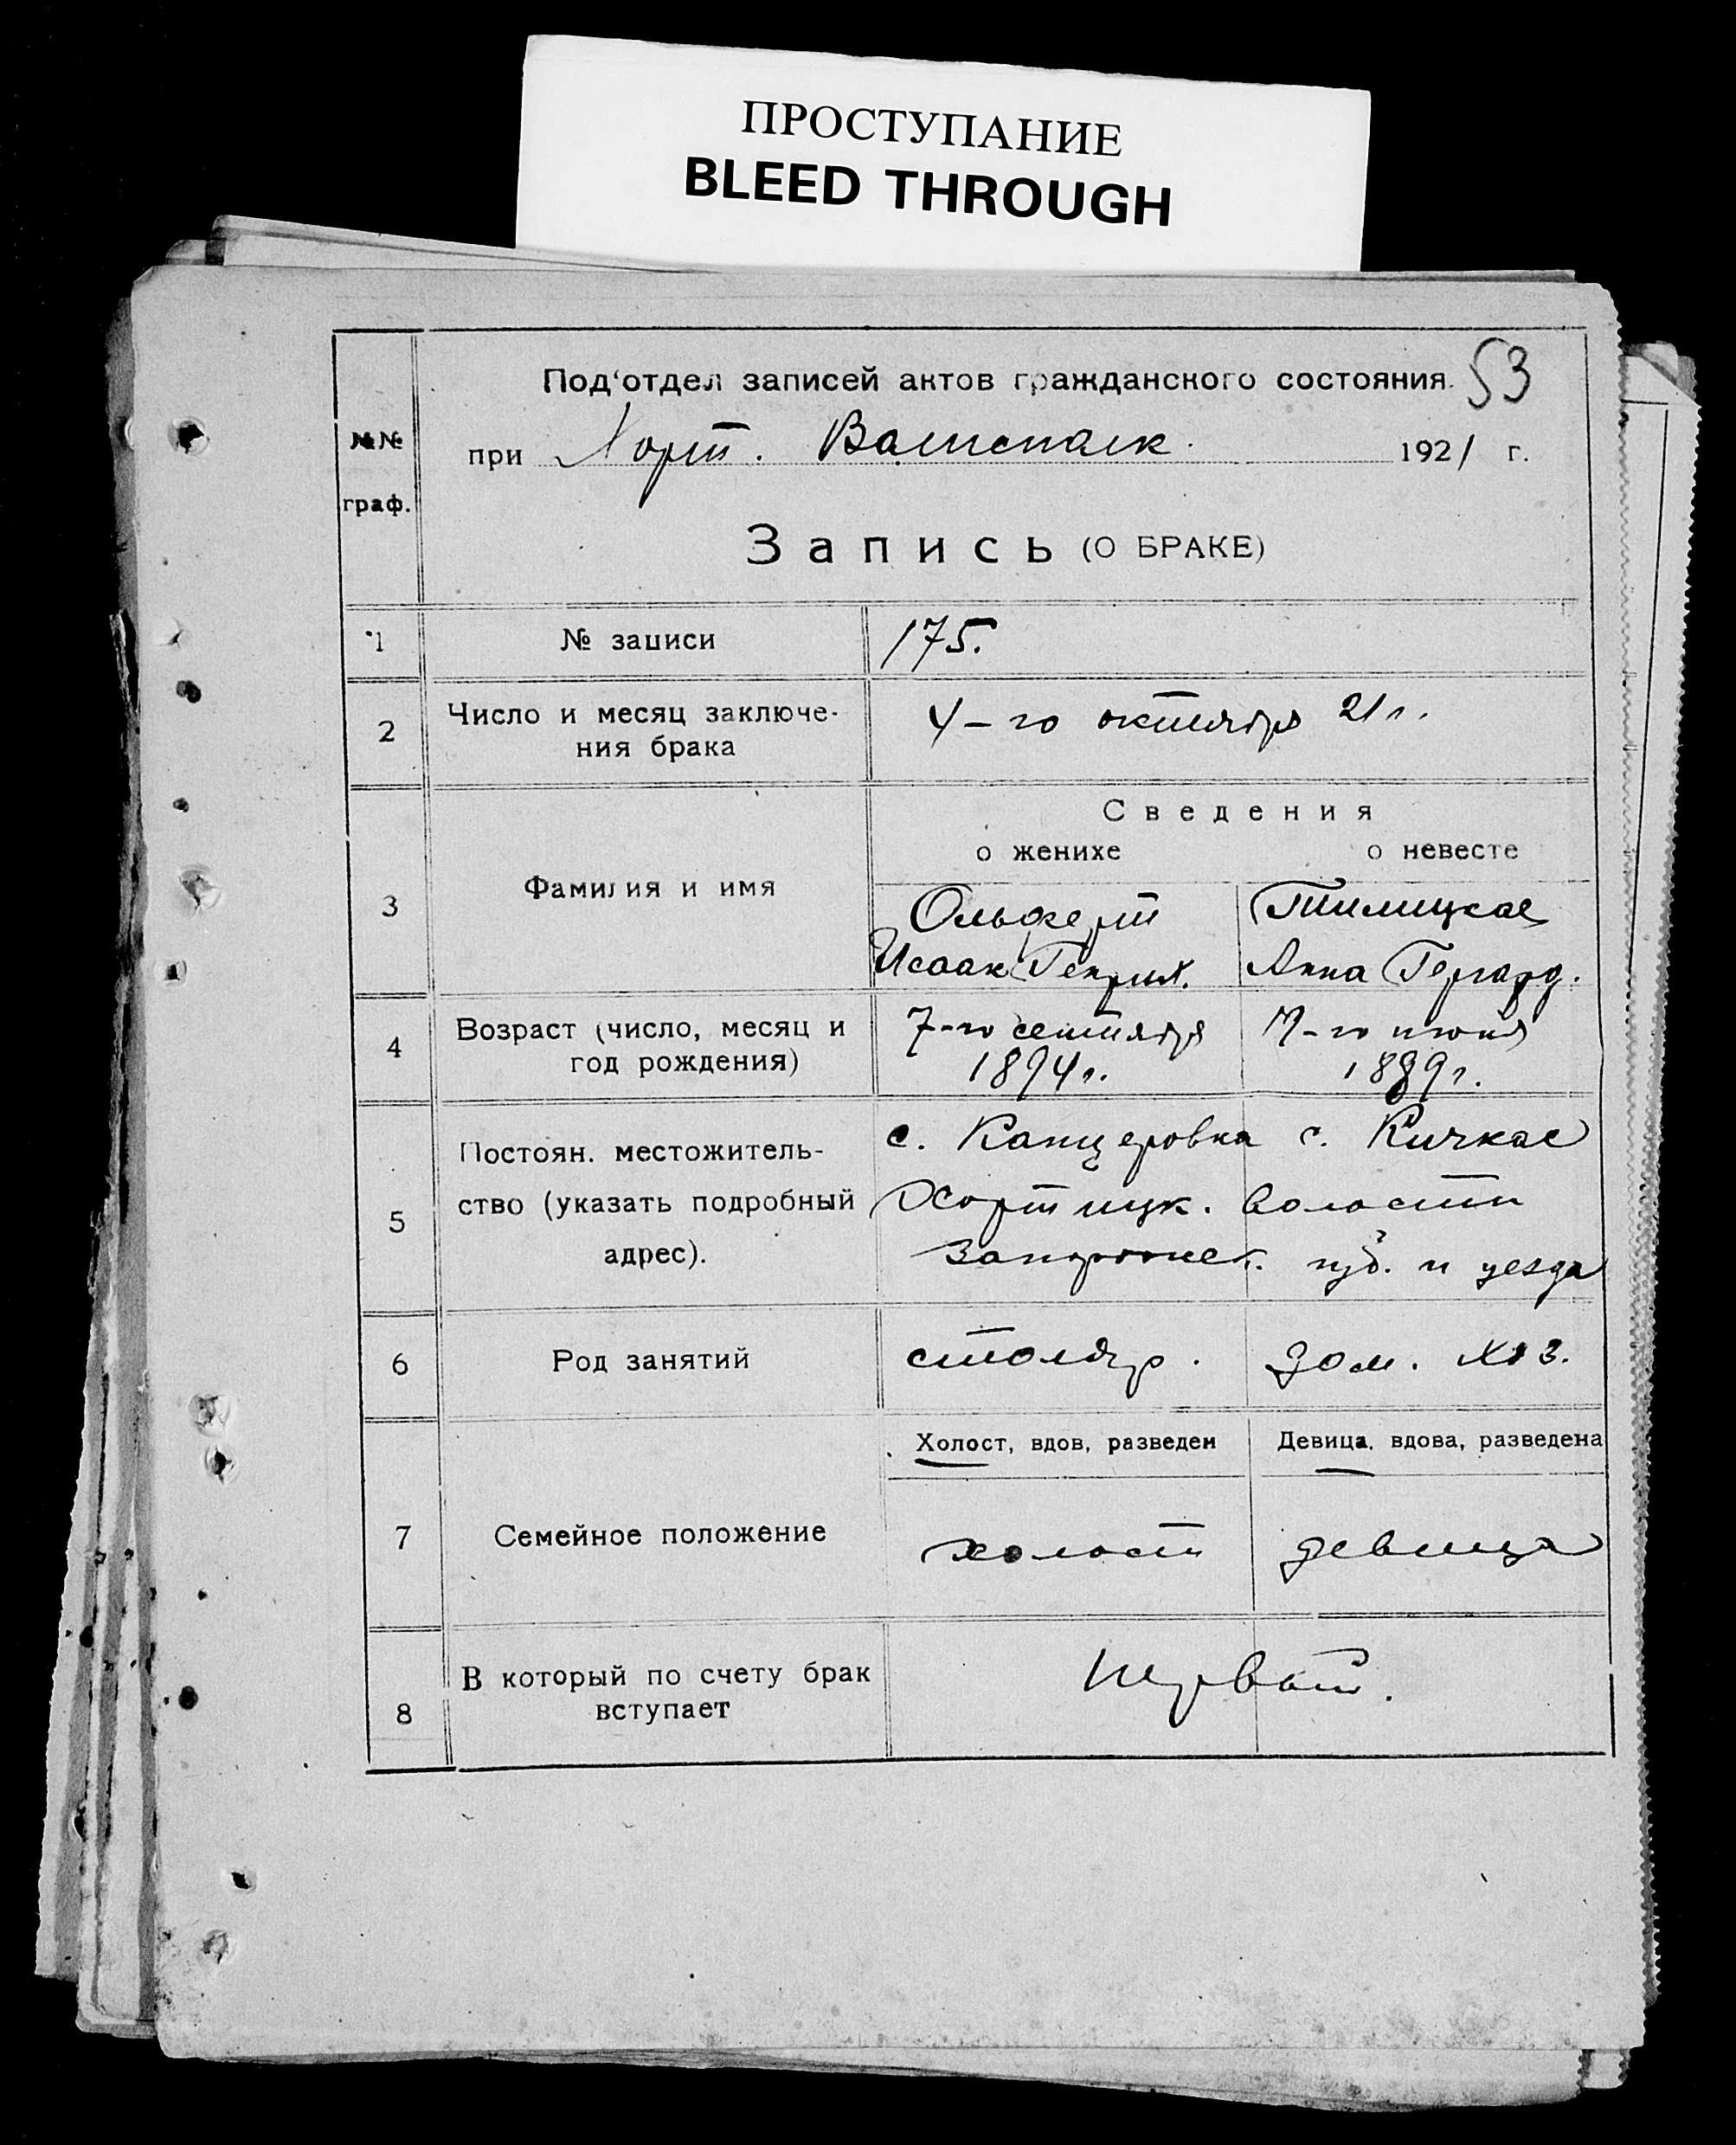 ПРОСТУПАНИЕ
BLEED THROUGH
Под'отдел записей актов гражданского состояния. 53
№№ граф.
при Хорт. Волисполк. 1921 г.
Запись (О БРАКЕ)
1 № записи 175.
2 Число и месяц заключе-
ния брака 4-го октября 21 г.
Сведения
о женихе о невесте
3 Фамилия и имя
Ольферт
Исаак Генрих. Анна Герард.
4 Возраст (число, месяц и
год рождения)
7-го сентября
1894 г. 1889 г.
5 Постоян. местожитель-
ство (указать подробный
адрес).
с. Канцеровка с. Кичкас
Хортицк. волости
Запорожск. губ. и уезда
6 Род занятий столяр. дом. хоз.
Холост, вдов, разведен Девица, вдова, разведена
7 Семейное положение холост девица
8 В который по счету брак
вступает первый.